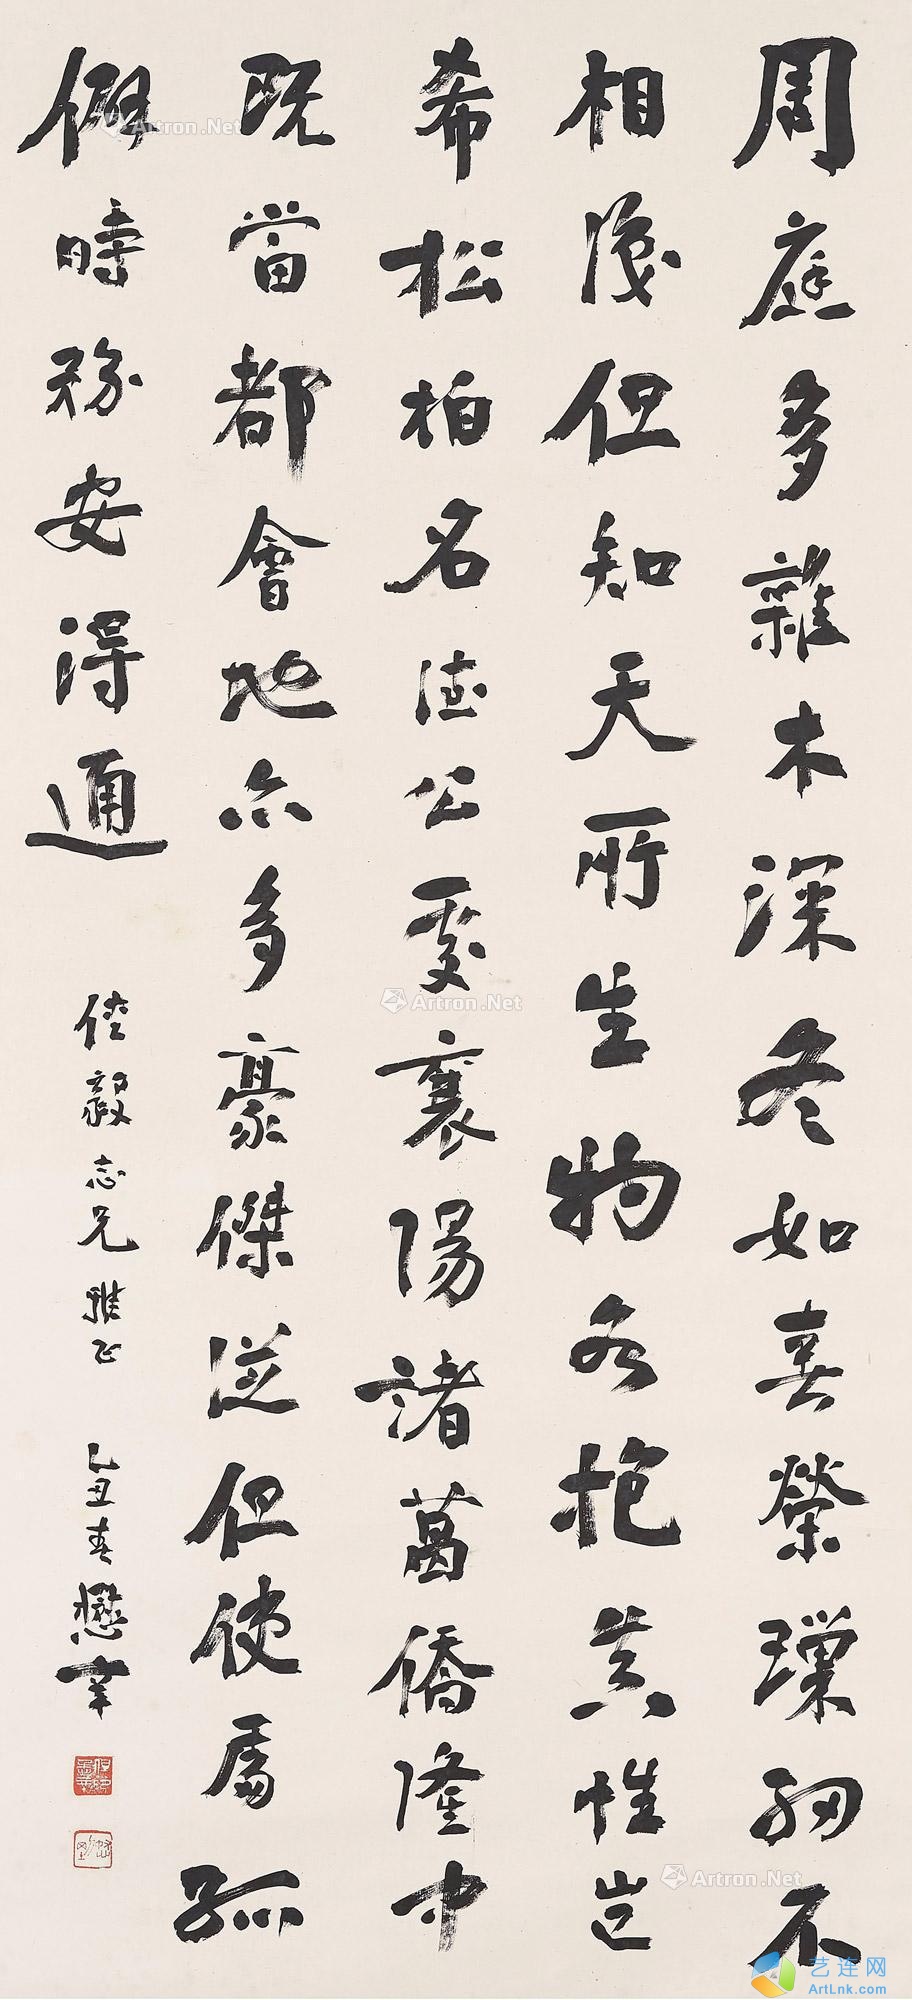 周庭多雜木深冬如喜榮璅細不
相淩但知天所生物各抱真性豈
希松柏名德公處襄陽諸葛僑隆中
既當都會地亦多豪傑從但使居孤
僻時務安得通
佳毅志兄雅正
乙丑春懋辛
Artron.Net
Artron.Net
Artron.Net
艺连网
ArtLnk.com